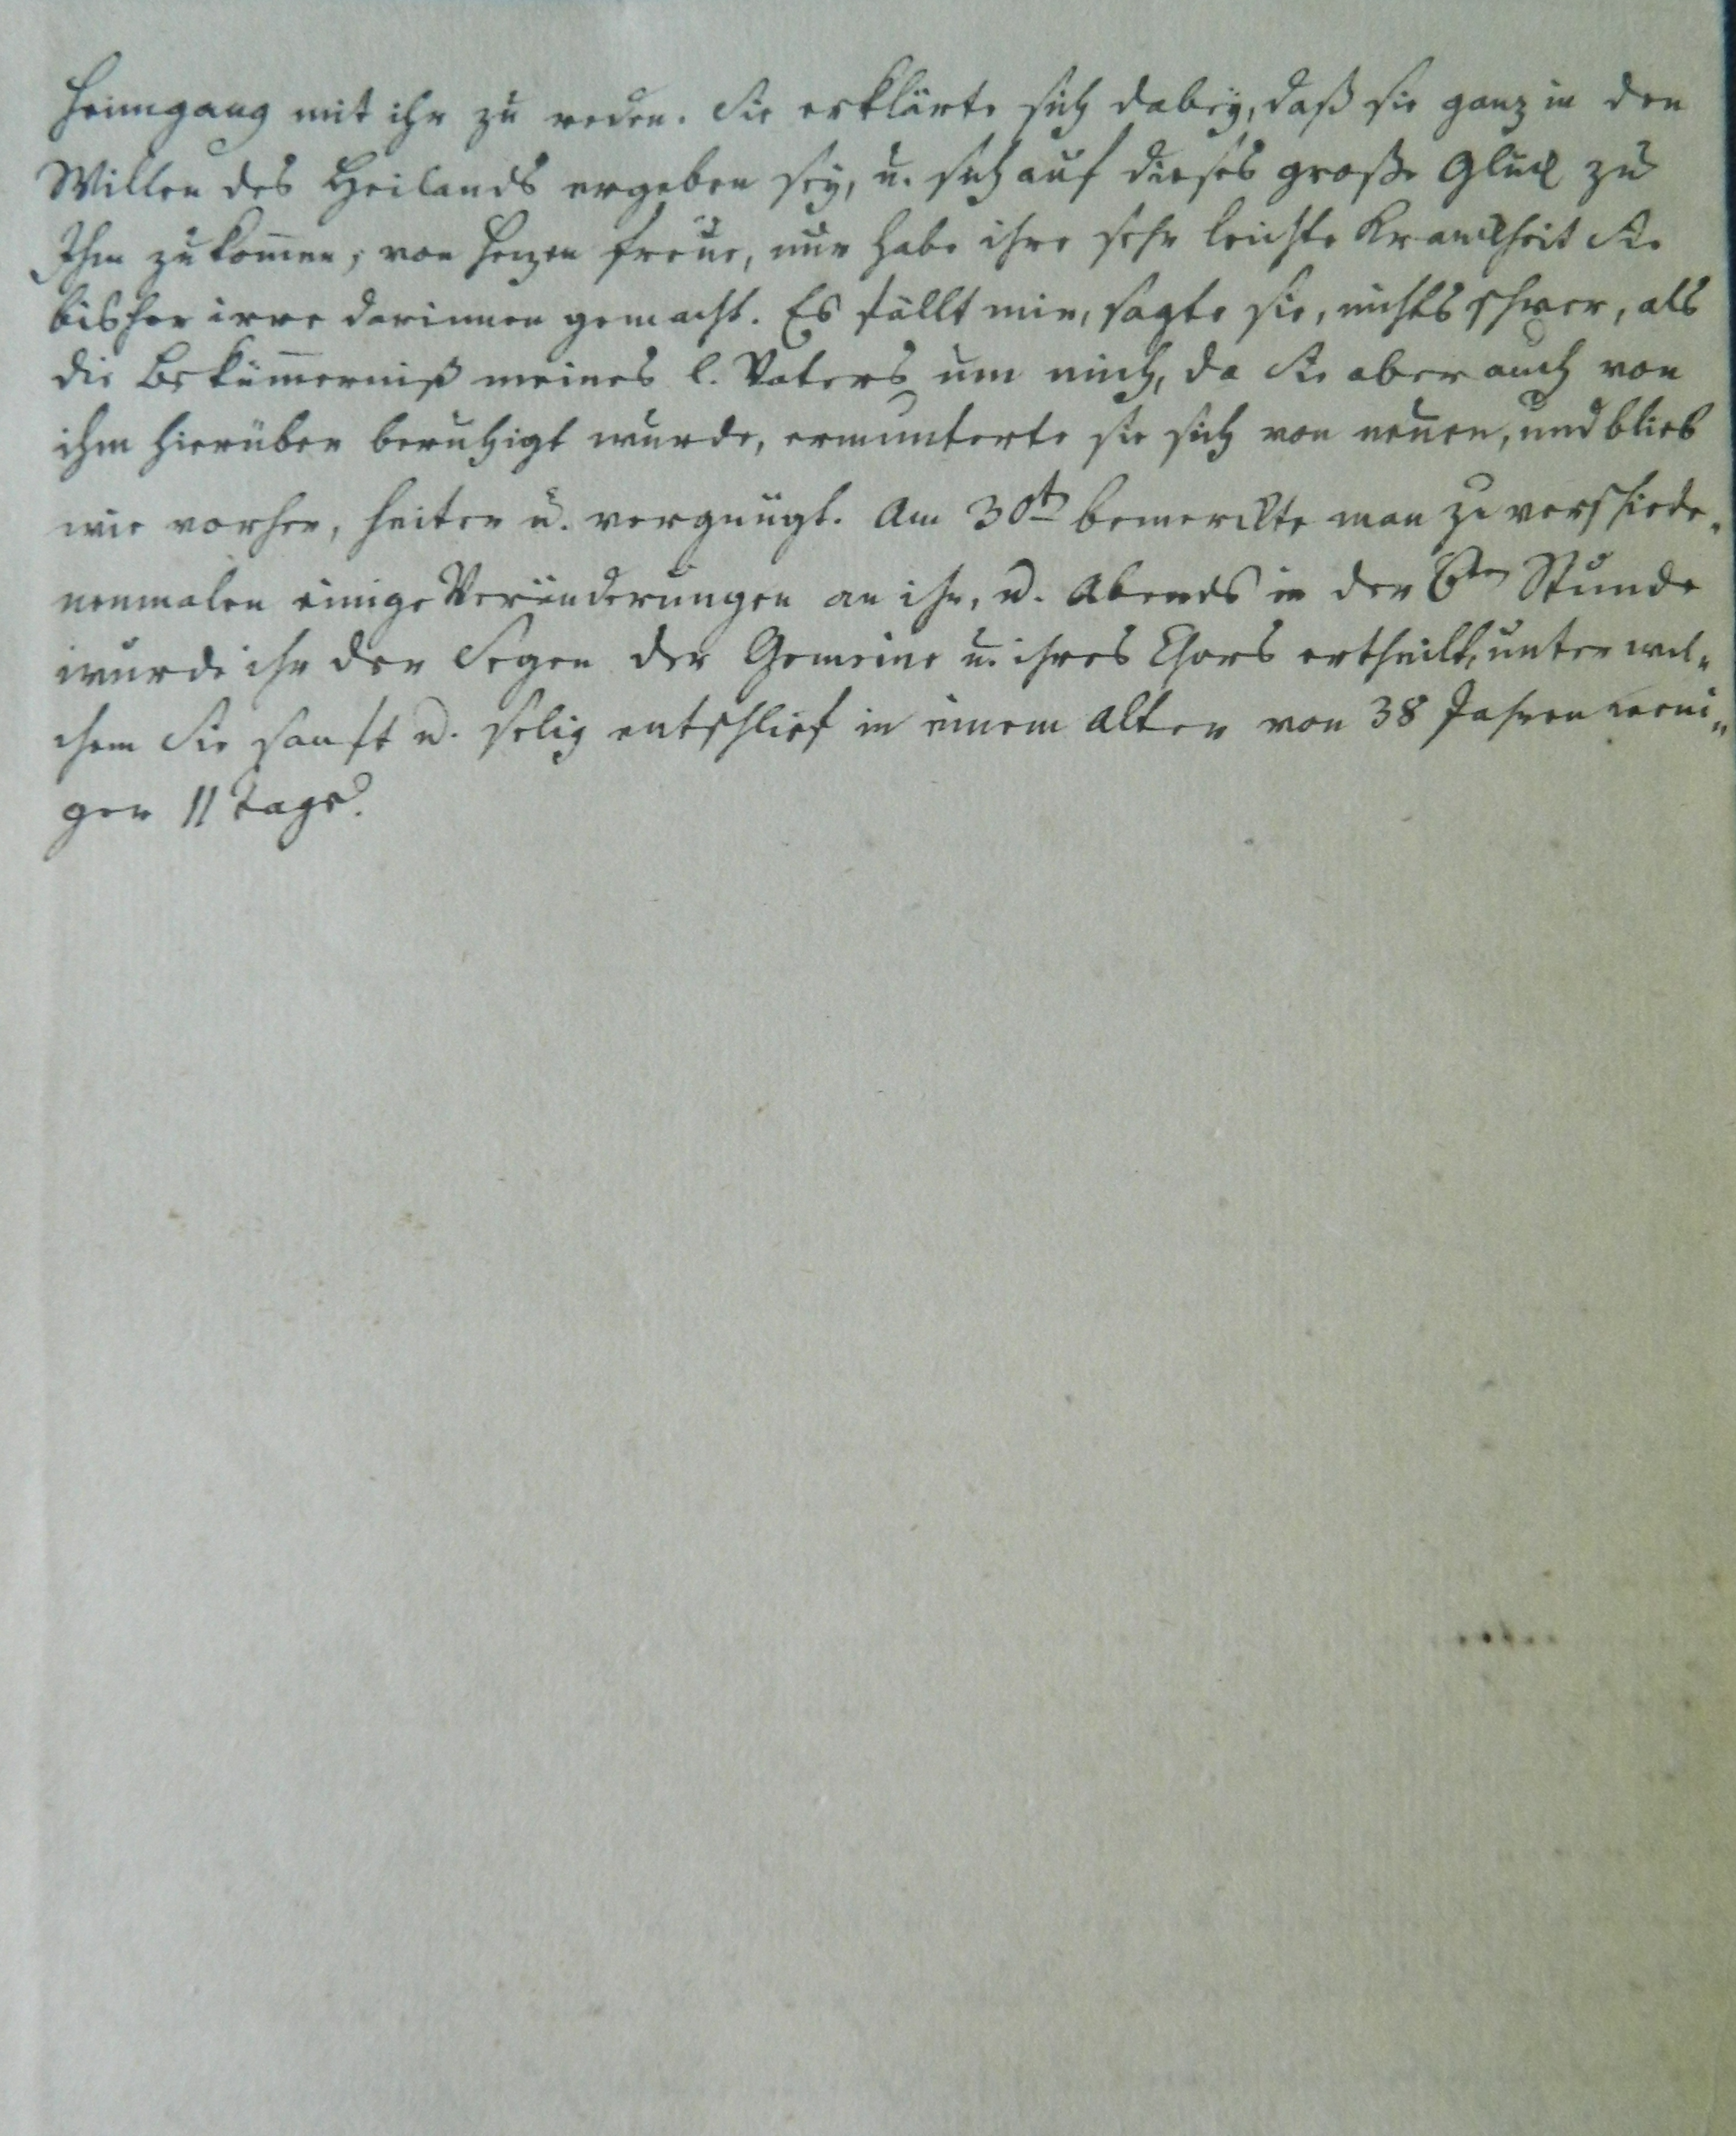 Heimgang mit ihr zu reden. Sie erklärte sich dabey, daß sie ganz in den
Willen des Heilands ergeben sey, u. sich auf dieses große Glück zu
Ihm zu kom̄en, von Herzen freue, nur habe ihre sehr leichte Kranckheit Sie
bisher irre darinnen gemacht. Es fällt mir, sagte sie, nichts schwer, als
die Beküm̄erniß meines l. Vaters um mich, da Sie aber auch von
ihm hierüber beruhigt wurde, ermunterte sie sich von neuen, und blieb
wie vorher, heiter u. vergnügt. Am 30t bemerckte man zu verschiede-
nenmalen einige Veränderungen an ihr, u. Abends in der 6ten Stunde
wurde ihr der Segen der Gemeine u. ihres Chors ertheilt, unter wel-
chem Sie sanft u. selig entschlief in einem Alter von 38 Jahren weni-
ger 11 Tage.